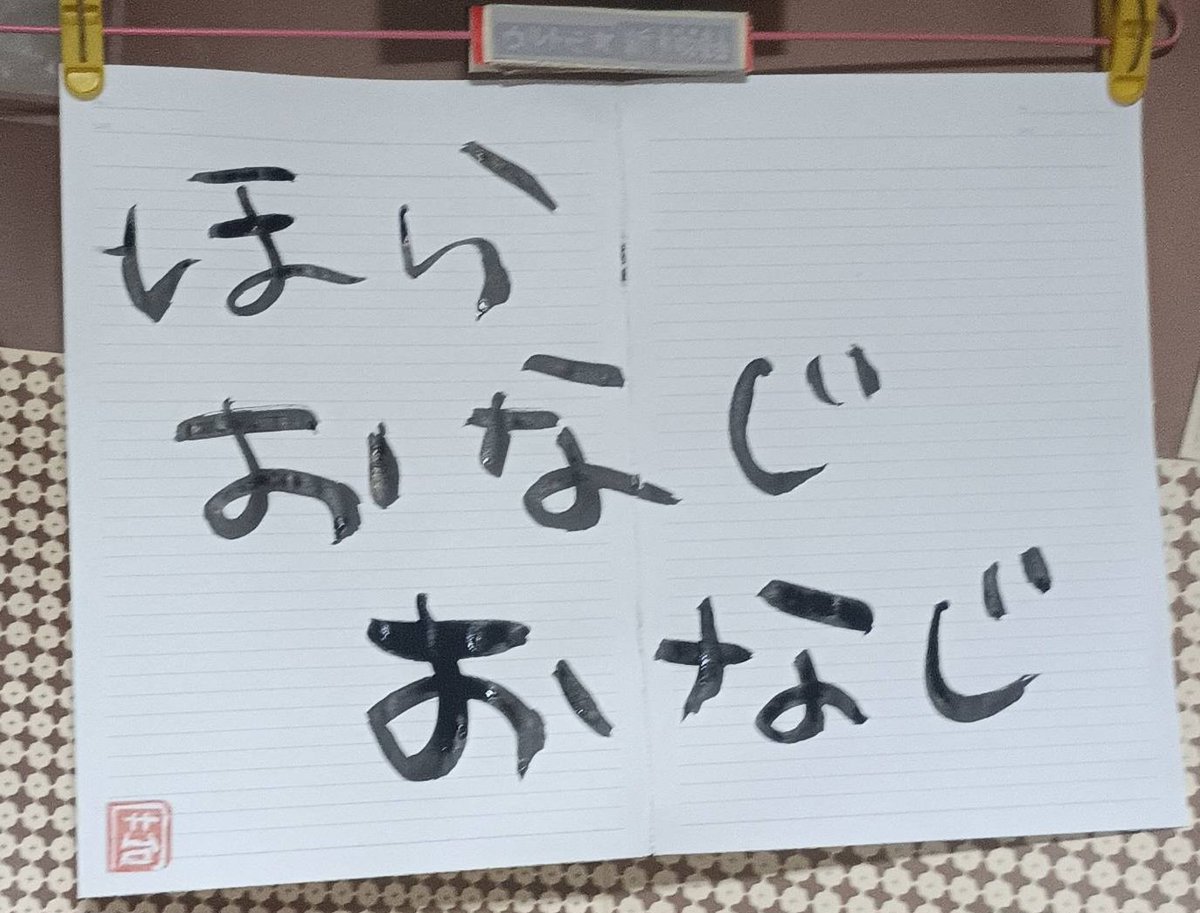 ほら
おなじ
おなじ